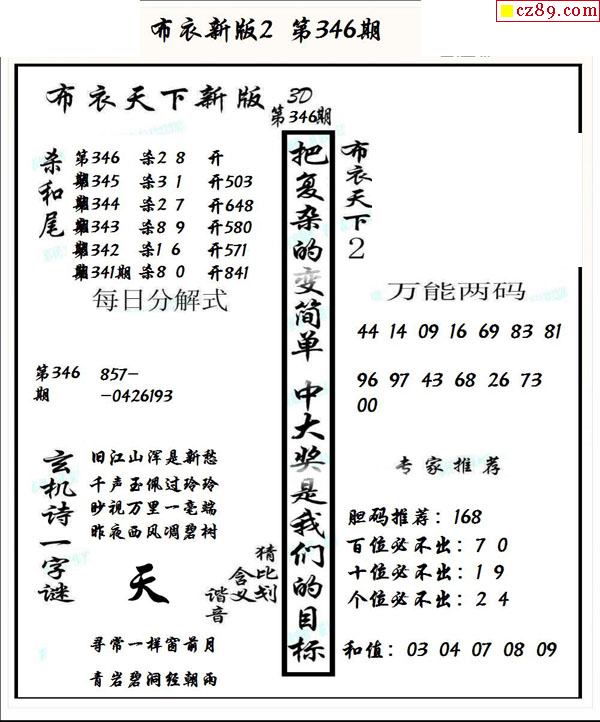 cz89.com
布衣新版2 第346期
布衣天下新版 3D
第346期
杀和尾
第346期 杀2 8 开
第345期 杀3 1 开503
第344期 杀2 7 开648
第343期 杀8 9 开580
第342期 杀1 6 开571
第341期 杀8 0 开841
每日分解式
第346期 857-
-0426193
玄机诗一字谜
旧江山浑是新愁
千声玉佩过玲玲
眇视万里一毫端
昨夜西风凋碧树
天
猜比划
含义
谐音
寻常一样窗前月
青岩碧洞经朝雨
把复杂的变简单 中大奖是我们的目标
布衣天下2
万能两码
44 14 09 16 69 83 81
96 97 43 68 26 73
00
专家推荐
胆码推荐：168
百位必不出：7 0
十位必不出：1 9
个位必不出：2 4
和值：03 04 07 08 09